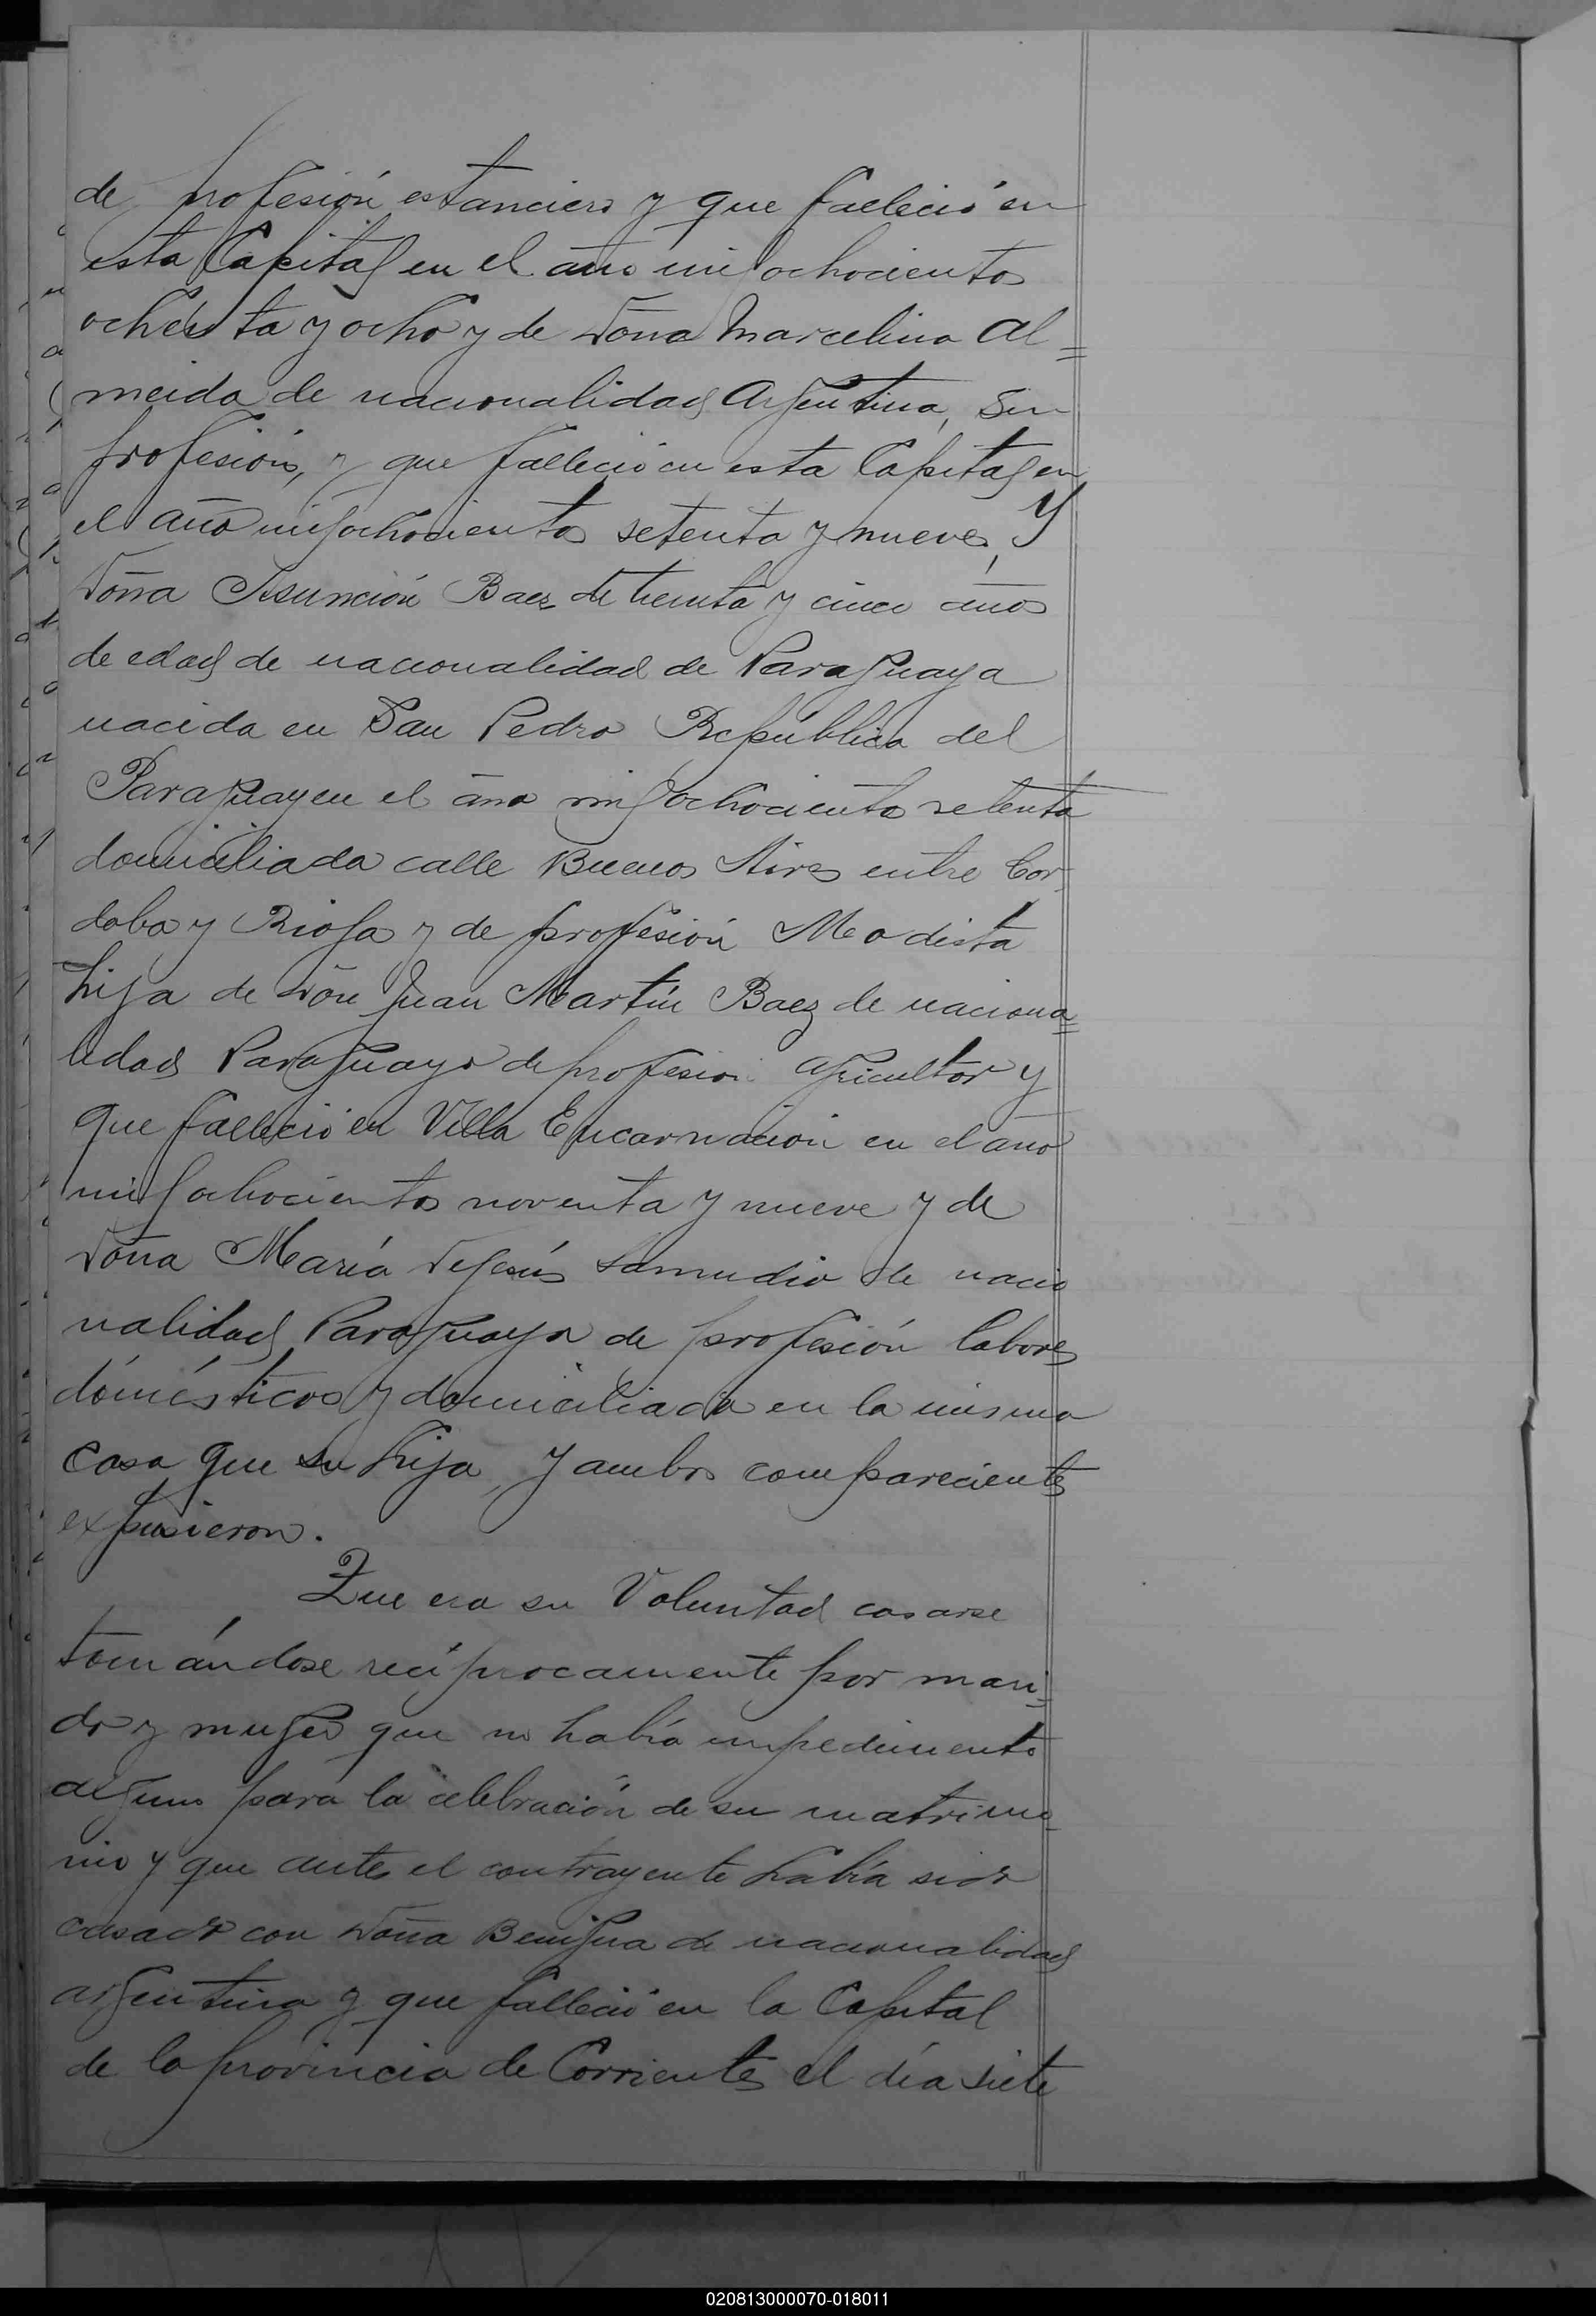 de profesión estanciero y que falleció en
esta Capital en el año mil ochocientos
ochenta y ocho y de Doña Marcelina Al=
meida de nacionalidad Argentina, sin
profesión, y que falleció en esta Capital en
el año mil ochocientos setenta y nueve, y
Doña Asunción Baez de treinta y cinco años
de edad de nacionalidad de Paraguaya
nacida en San Pedro República del
Paraguay en el año mil ochocientos setenta
domiciliada calle Buenos Aires entre Cor-
doba y Rioja y de profesión Modista
hija de Don Juan Martín Baez de naciona=
lidad Paraguayo de profesion agricultor y
que falleció en Villa Encarnación en el año
mil ochocientos noventa y nueve y de
Doña María Dejesús Samudio de nacio
nalidad Paraguaya de profesión labores
domésticos y domiciliada en la misma
casa que su hija, y ambos comparecientes
expusieron.
Que era su Voluntad casarse
tomándose recíprocamente por mari=
do y muger que no había impedimento
alguno para la celebración de su matrimo=
nio y que antes el contrayente había sido
casado con Doña Benigna de nacionalidad
argentina y que falleció en la Capital
de la provincia de Corrientes el día siete
020813000070-018011